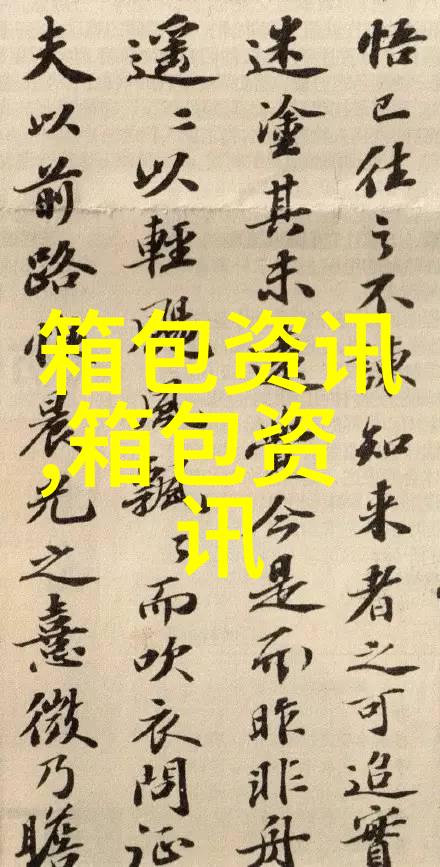 悟已往之不諫知来者之可追實
迷塗其未遠覺今是而昨非舟
遥〻以輕颺風飄〻而吹衣問征
夫以前路恨晨光之熹微乃瞻
箱包资讯
,箱包资
讯